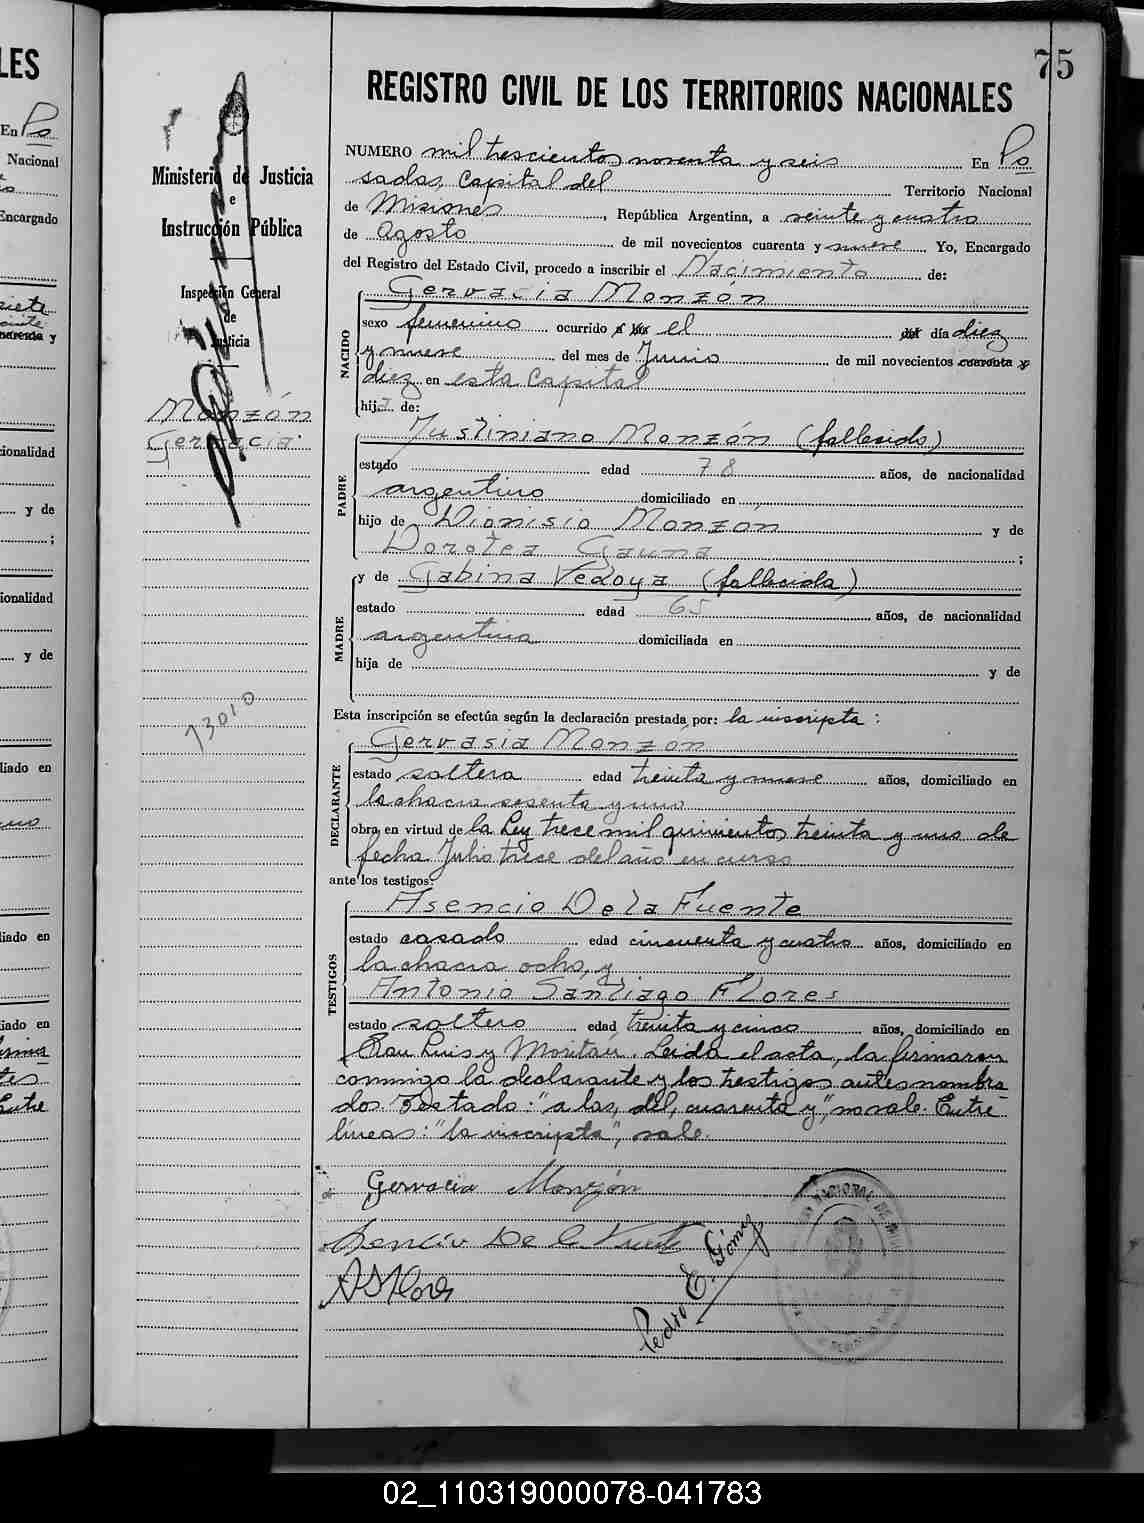 75
REGISTRO CIVIL DE LOS TERRITORIOS NACIONALES
Ministerio de Justicia
e
Instrucción Pública
Inspección General
de
Justicia
Monzón
Gervacia.
13010
NUMERO mil trescientos noventa y seis En Po
sadas, Capital del Territorio Nacional
de Misiones, República Argentina, a veinte y cuatro
de Agosto de mil novecientos cuarenta y nueve Yo, Encargado
del Registro del Estado Civil, procedo a inscribir el Nacimiento de:
Gervacia Monzón
NACIDO
sexo femenino ocurrido a las el del día diez
y nueve del mes de Junio de mil novecientos cuarenta y
diez en esta Capital
hija de:
Justiniano Monzón (fallecido)
PADRE
estado edad 78 años, de nacionalidad
argentino domiciliado en
hijo de Dionisio Monzón y de
Dorotea Gauna ;
MADRE
y de Gabina Vedoya (fallecida)
estado edad 65 años, de nacionalidad
argentina domiciliada en
hija de y de
Esta inscripción se efectúa según la declaración prestada por: la inscripta:
DECLARANTE
Gervasia Monzón
estado soltera edad treinta y nueve años, domiciliado en
la chacra sesenta y uno
obra en virtud de la Ley trece mil quinientos treinta y uno de
fecha Julio trece del año en curso
ante los testigos:
TESTIGOS
Asencio De la Fuente
estado casado edad cincuenta y cuatro años, domiciliado en
la chacra ocho, y
Antonio Santiago Flores
estado soltero edad treinta y cinco años, domiciliado en
San Luis y Moritán. Leída el acta, la firmaron
conmigo la declarante y los testigos antes nombra
dos. Testado: "a las, del, cuarenta y", no vale. Entre
líneas: "la inscripta", vale.
Gervacia Monzón
Asencio De la Fuente
A S Flores
Pedro E. Gómez
02_110319000078-041783